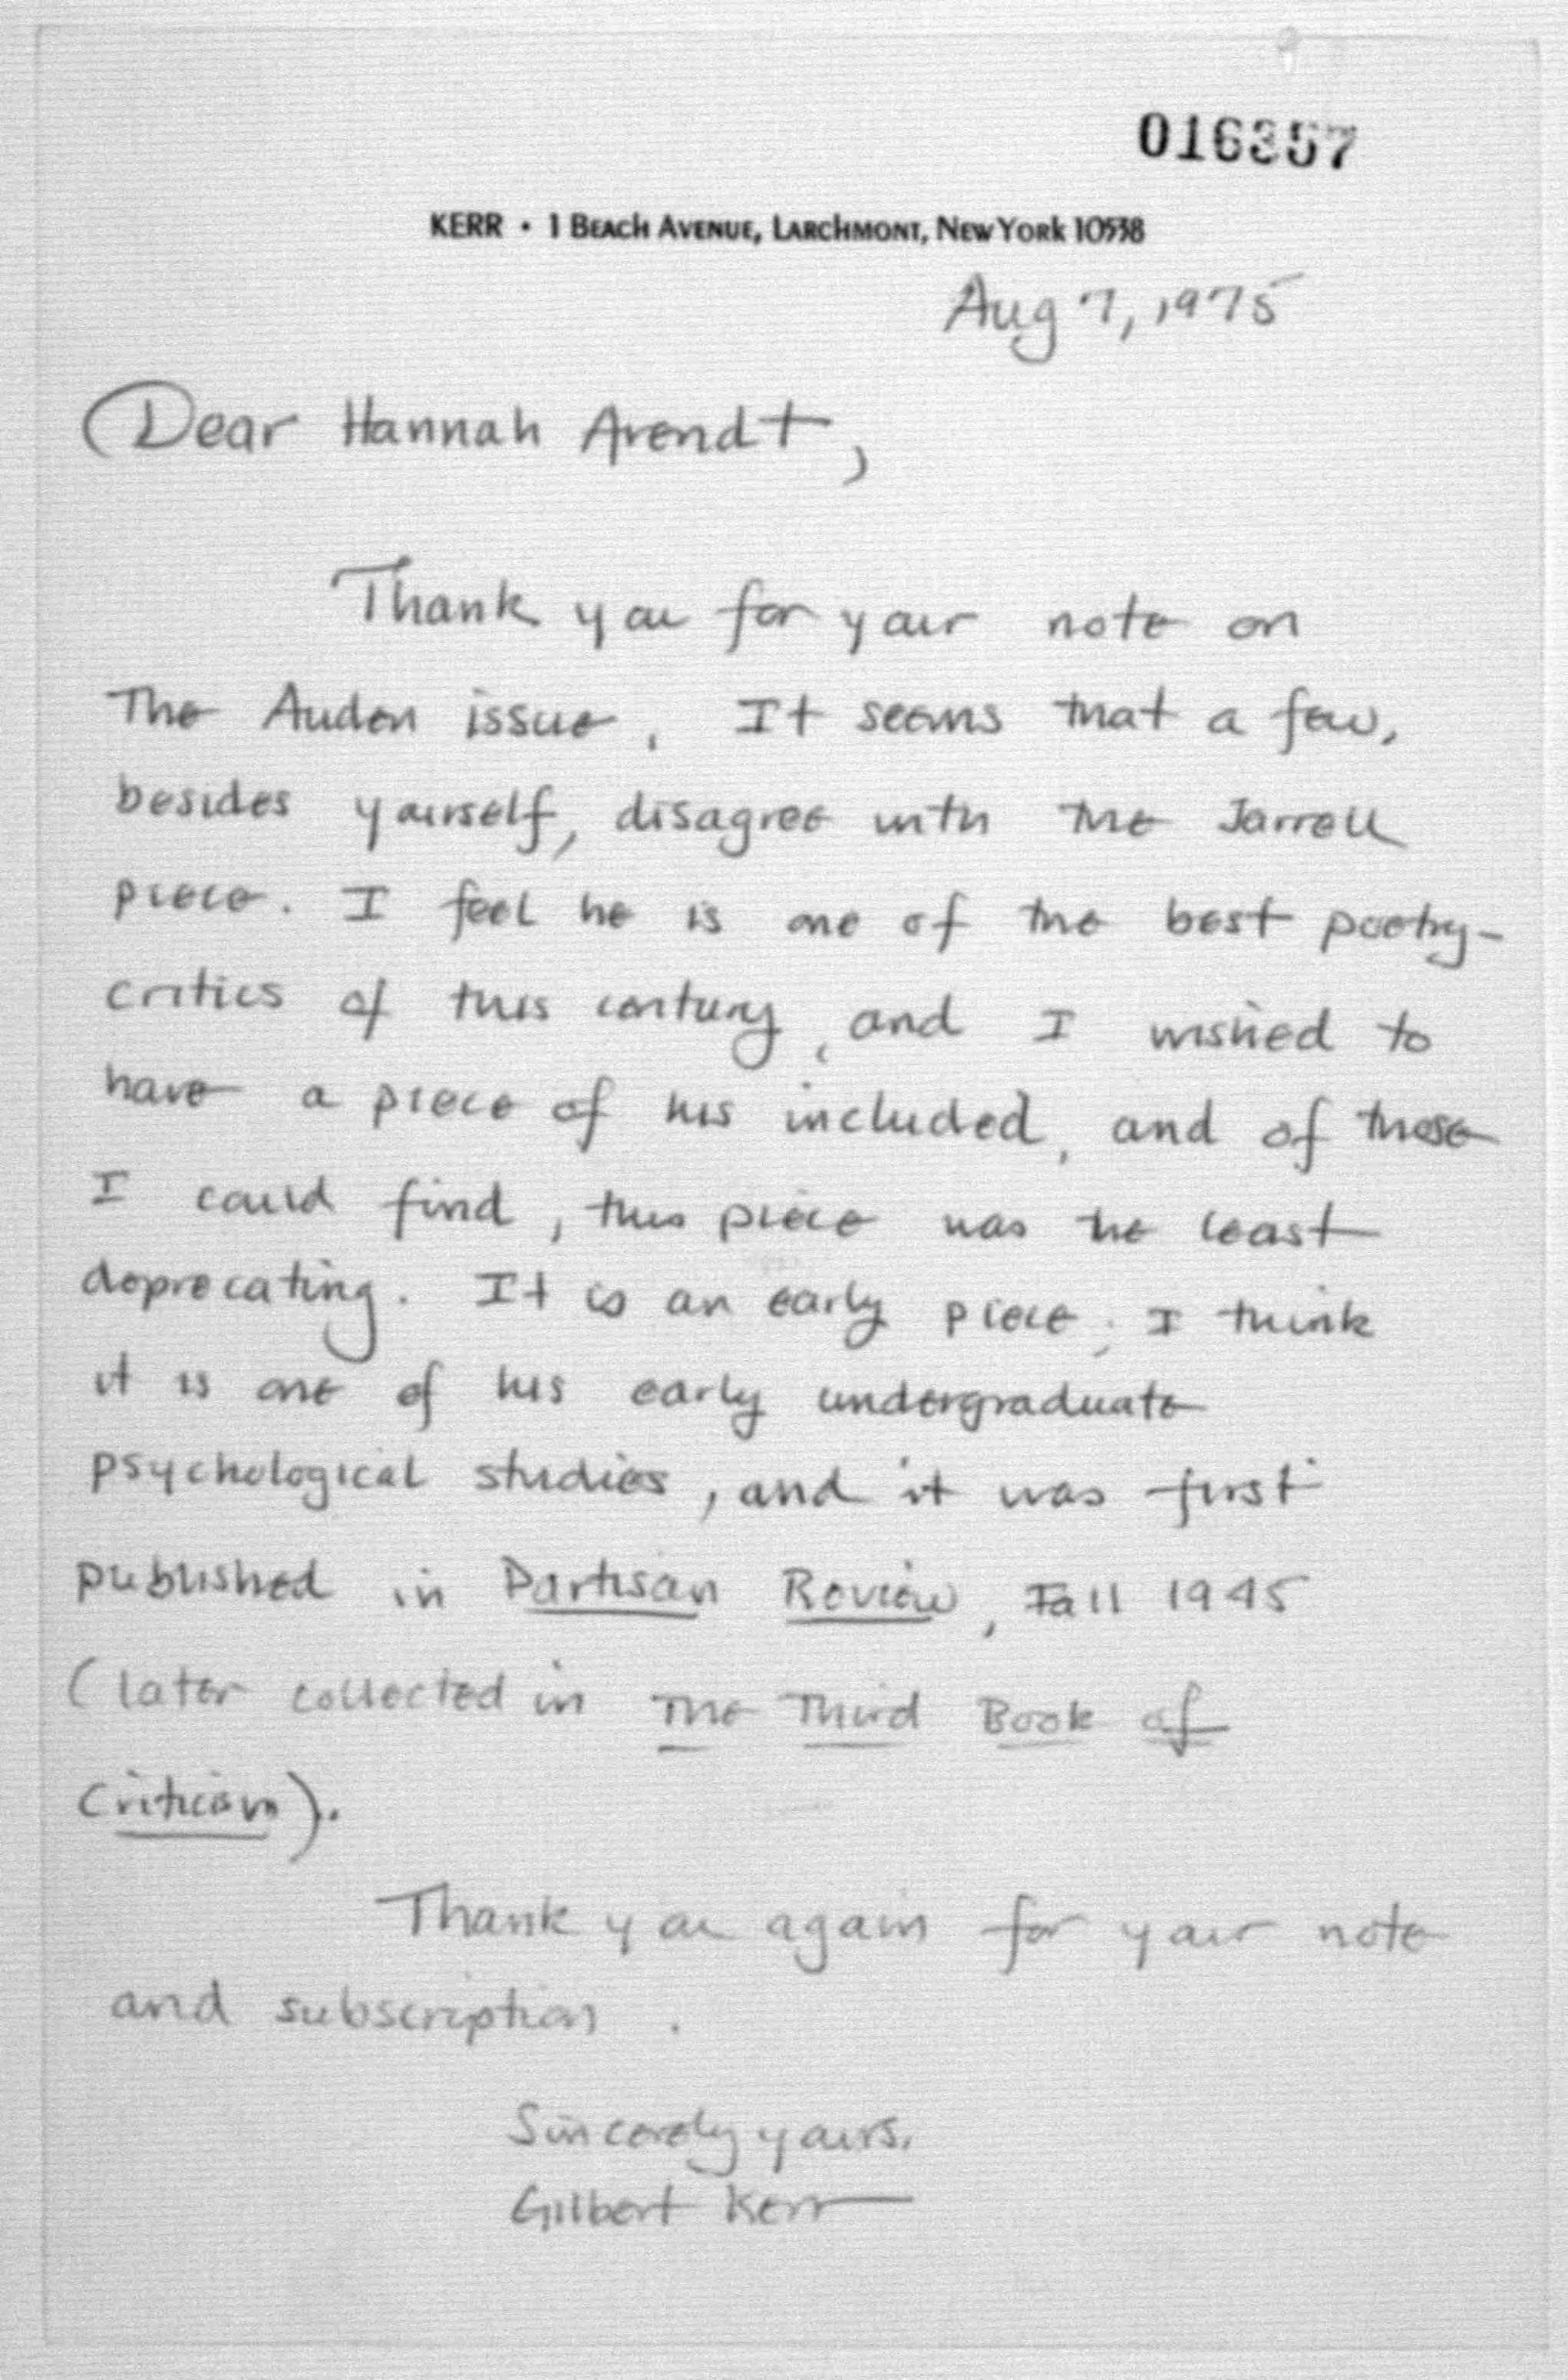 016357
KERR • 1 BEACH AVENUE, LARCHMONT, NEW YORK 10538
Aug 7, 1975
Dear Hannah Arendt,
Thank you for your note on
The Auden issue. It seems that a few,
besides yourself, disagree with the Jarrell
piece. I feel he is one of the best poetry-
critics of this century, and I wished to
have a piece of his included, and of those
I could find, this piece was the least
deprecating. It is an early piece; I think
it is one of his early undergraduate
psychological studies, and it was first
published in Partisan Review, Fall 1945
(later collected in The Third Book of
Criticism).
Thank you again for your note
and subscription.
Sincerely yours,
Gilbert Kerr